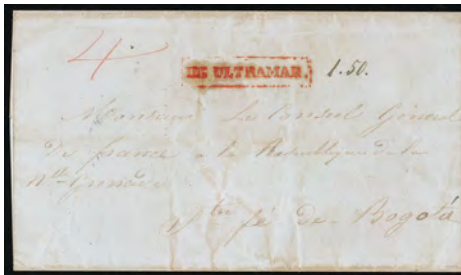 4
DE ULTRAMAR.
1.50.
Monsieur Le Consul Général
de france à la République de la
Nlle Grenade
Sta fé de Bogotá